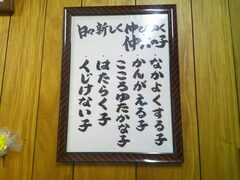 日々新しく伸びゆく
仲よし子
・なかよくする子
・かんがえる子
・こころゆたかな子
・はたらく子
・くじけない子